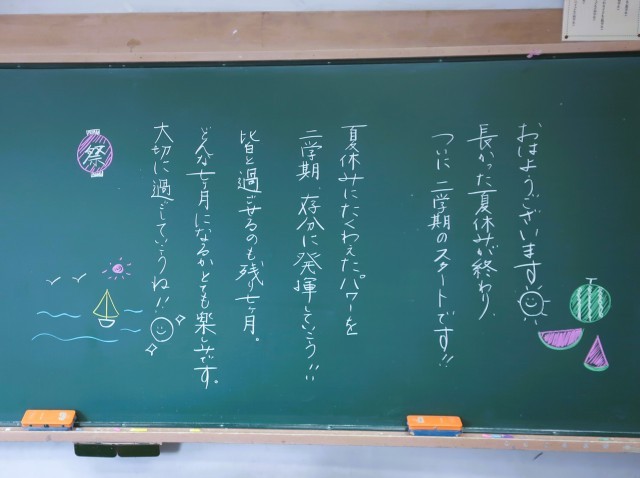 おはようございます
長かった夏休みが終わり、
ついに二学期のスタートです!!
夏休みにたくわえたパワーを
二学期、存分に発揮していこう!!
皆と過ごせるのも残り七ヶ月。
どんな七ヶ月になるかとても楽しみです。
大切に過ごしていこうね!!
祭